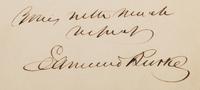 Yours with much
respect
Edmund Burke